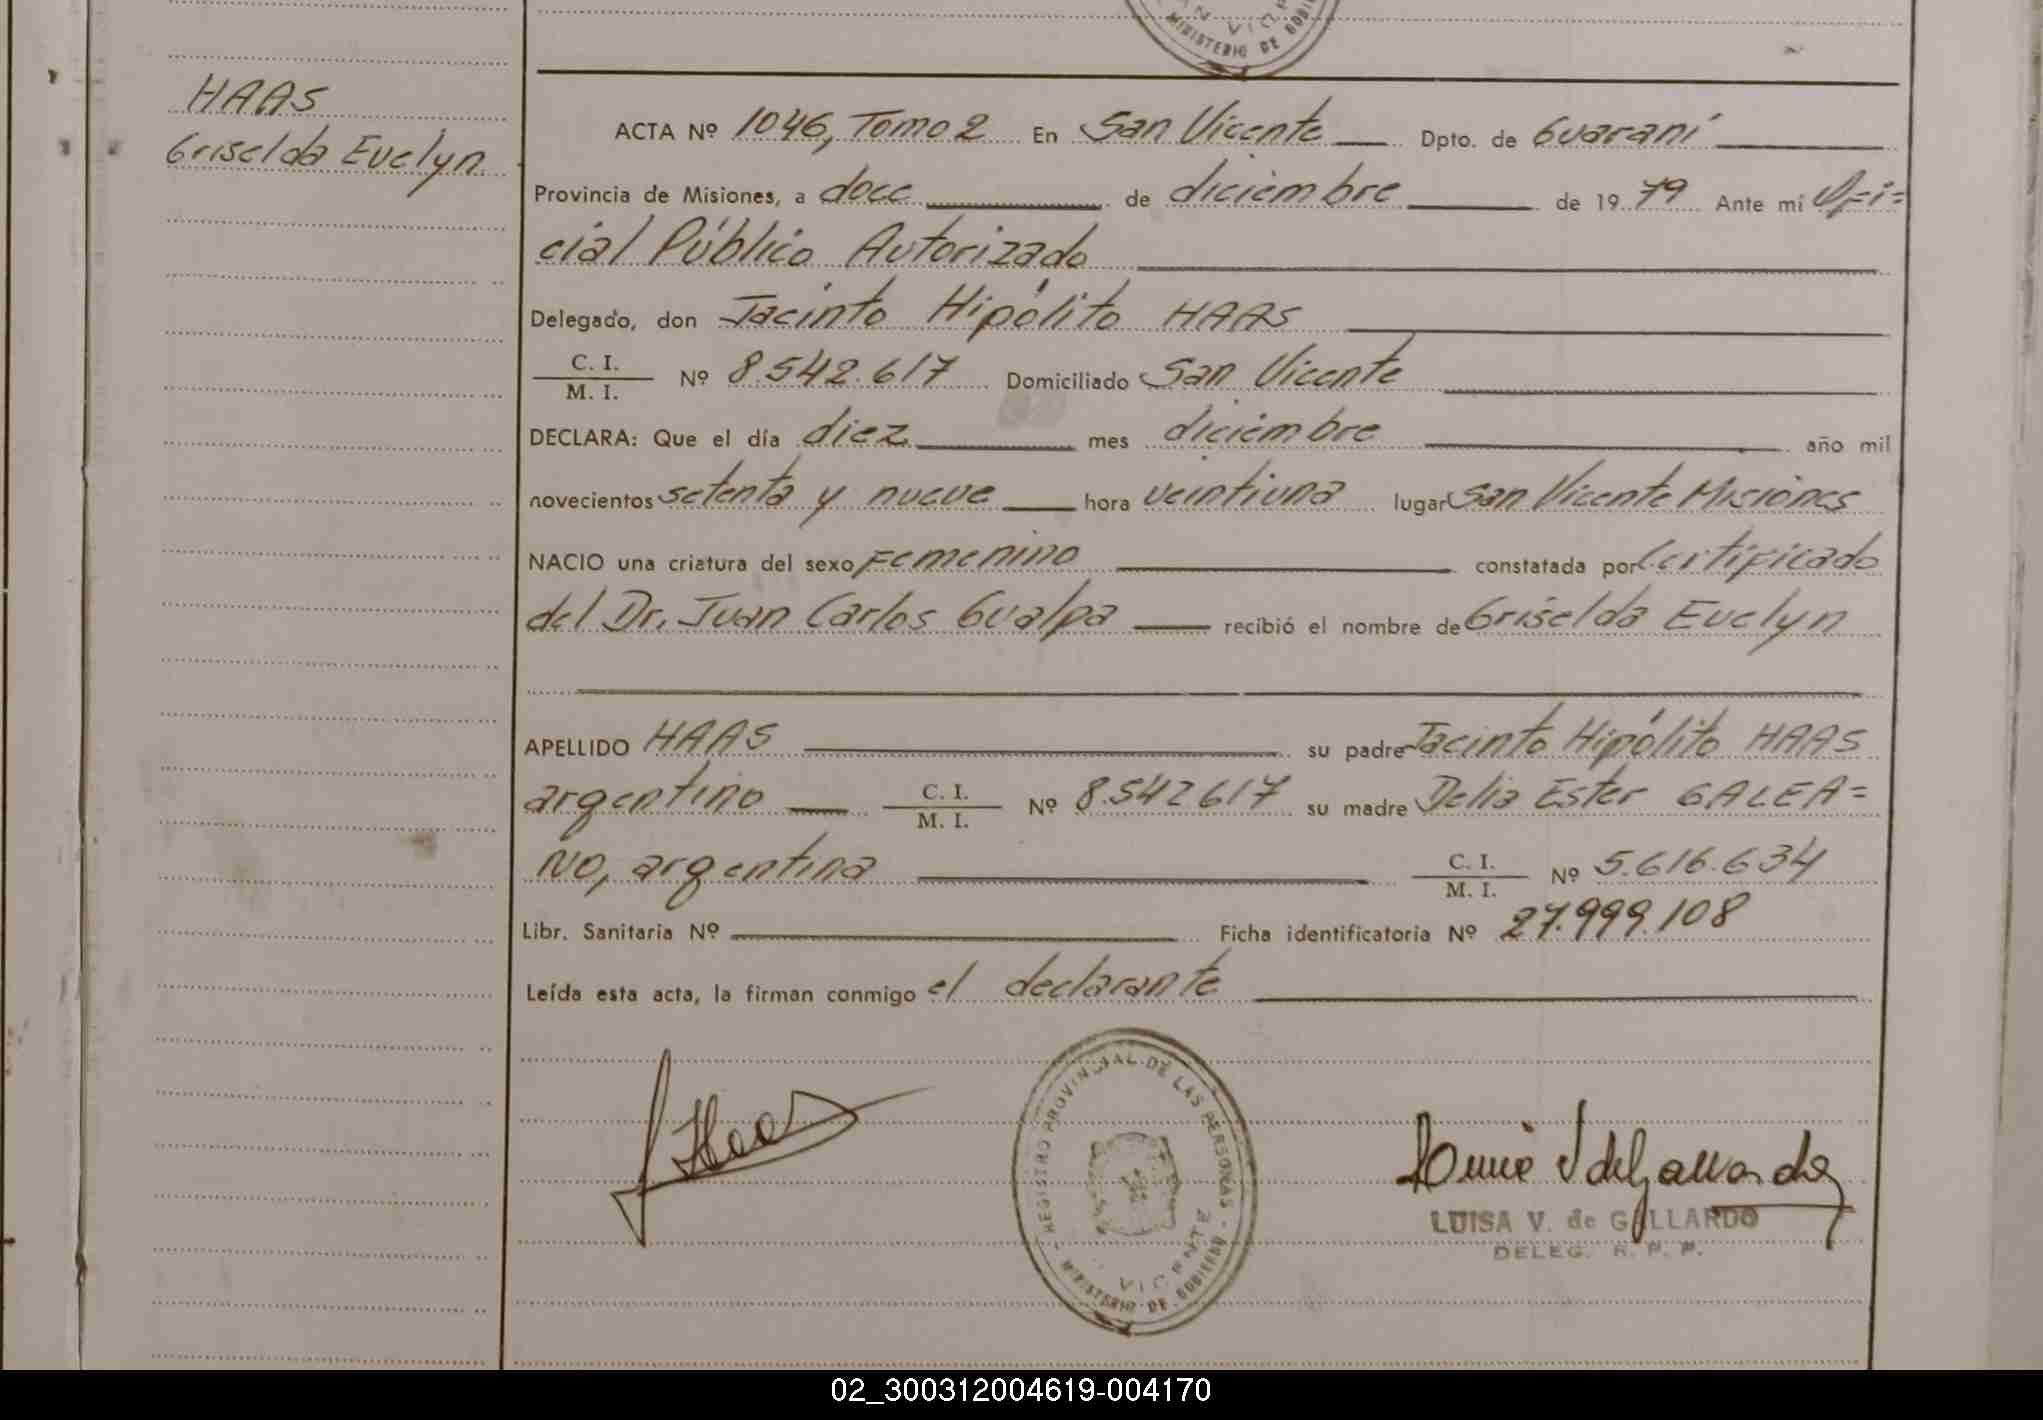 HAAS
Griselda Evelyn
ACTA Nº 1046, Tomo 2 En San Vicente Dpto. de Guaraní
Provincia de Misiones, a doce de diciembre de 1979 Ante mí Ofi=
cial Público Autorizado
Delegado, don Jacinto Hipólito HAAS
C. I.
M. I.
Nº 8.542.617 Domiciliado San Vicente
DECLARA: Que el día diez mes diciembre año mil
novecientos setenta y nueve hora veintiuna lugar San Vicente Misiones
NACIO una criatura del sexo Femenino constatada por Certificado
del Dr. Juan Carlos Gualpa recibió el nombre de Griselda Evelyn
APELLIDO HAAS su padre Jacinto Hipólito HAAS
argentino C. I. M. I. Nº 8.542617 su madre Delia Ester GALEA=
NO, argentina C. I. M. I. Nº 5.616.634
Libr. Sanitaria Nº Ficha identificatoria Nº 27.999.108
Leída esta acta, la firman conmigo el declarante
REGISTRO PROVINCIAL DE LAS PERSONAS
VICENTE
MINISTERIO DE GOBIERNO
LUISA V. de GALLARDO
DELEG. R. P. P.
02_300312004619-004170